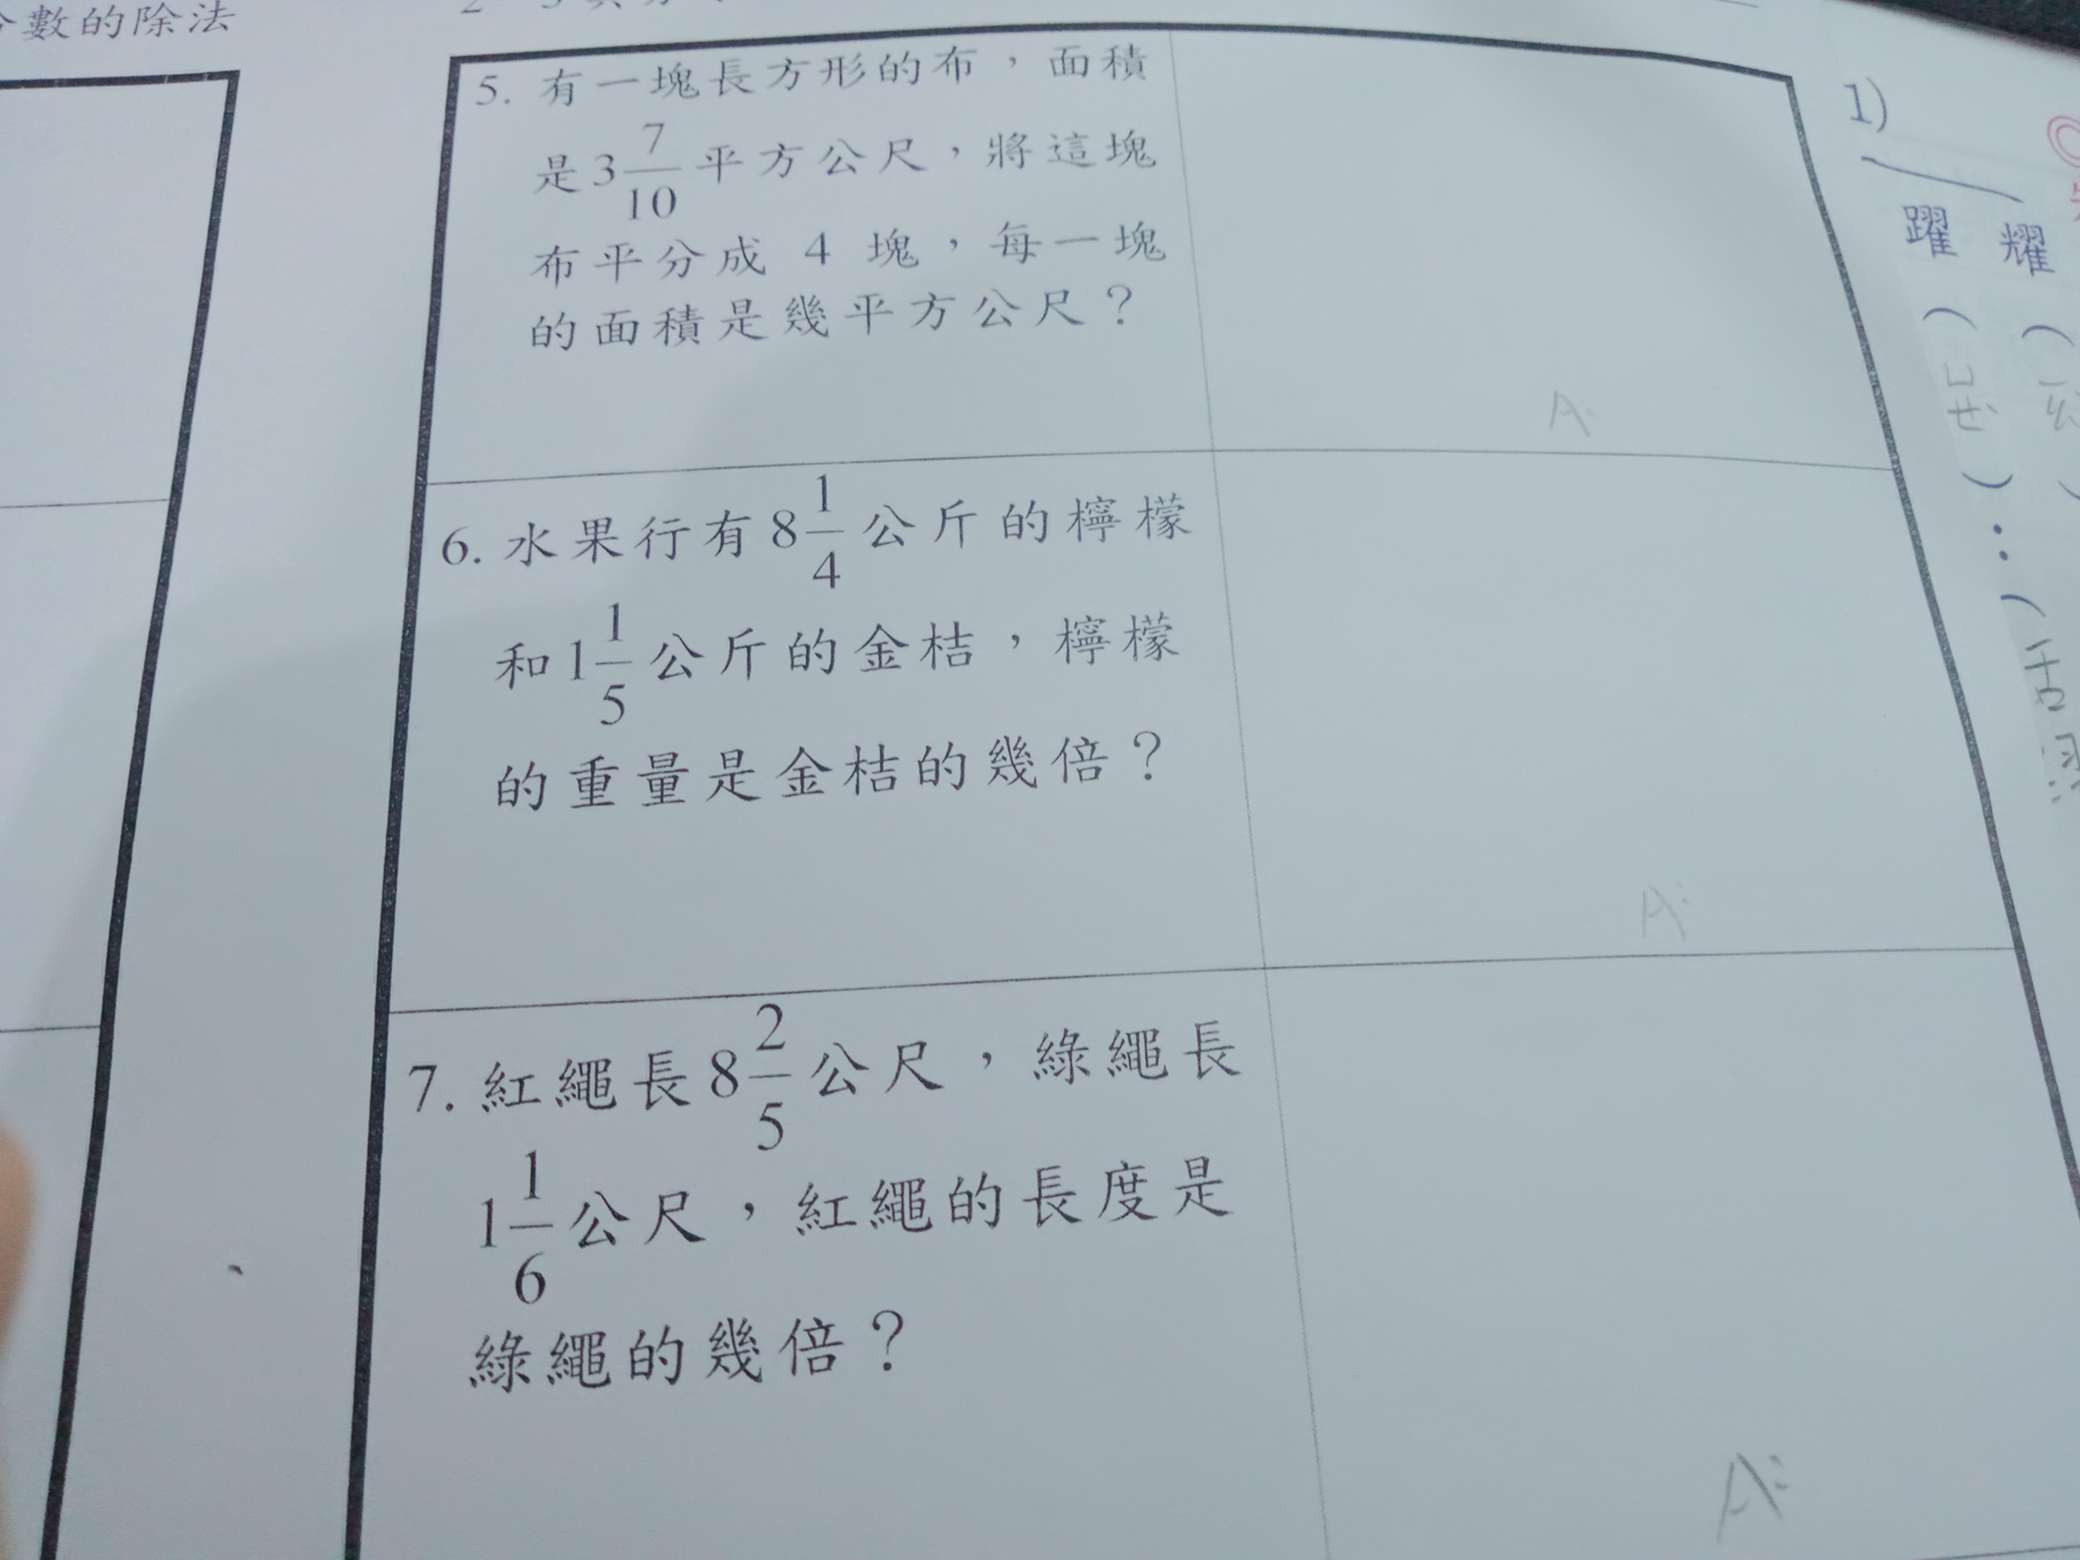 數的除法
5. 有一塊長方形的布，面積
是3 7/10 平方公尺，將這塊
布平分成 4 塊，每一塊
的面積是幾平方公尺？
A:
6. 水果行有8 1/4 公斤的檸檬
和1 1/5 公斤的金桔，檸檬
的重量是金桔的幾倍？
A:
7. 紅繩長8 2/5 公尺，綠繩長
1 1/6 公尺，紅繩的長度是
綠繩的幾倍？
A:
1)
躍
耀